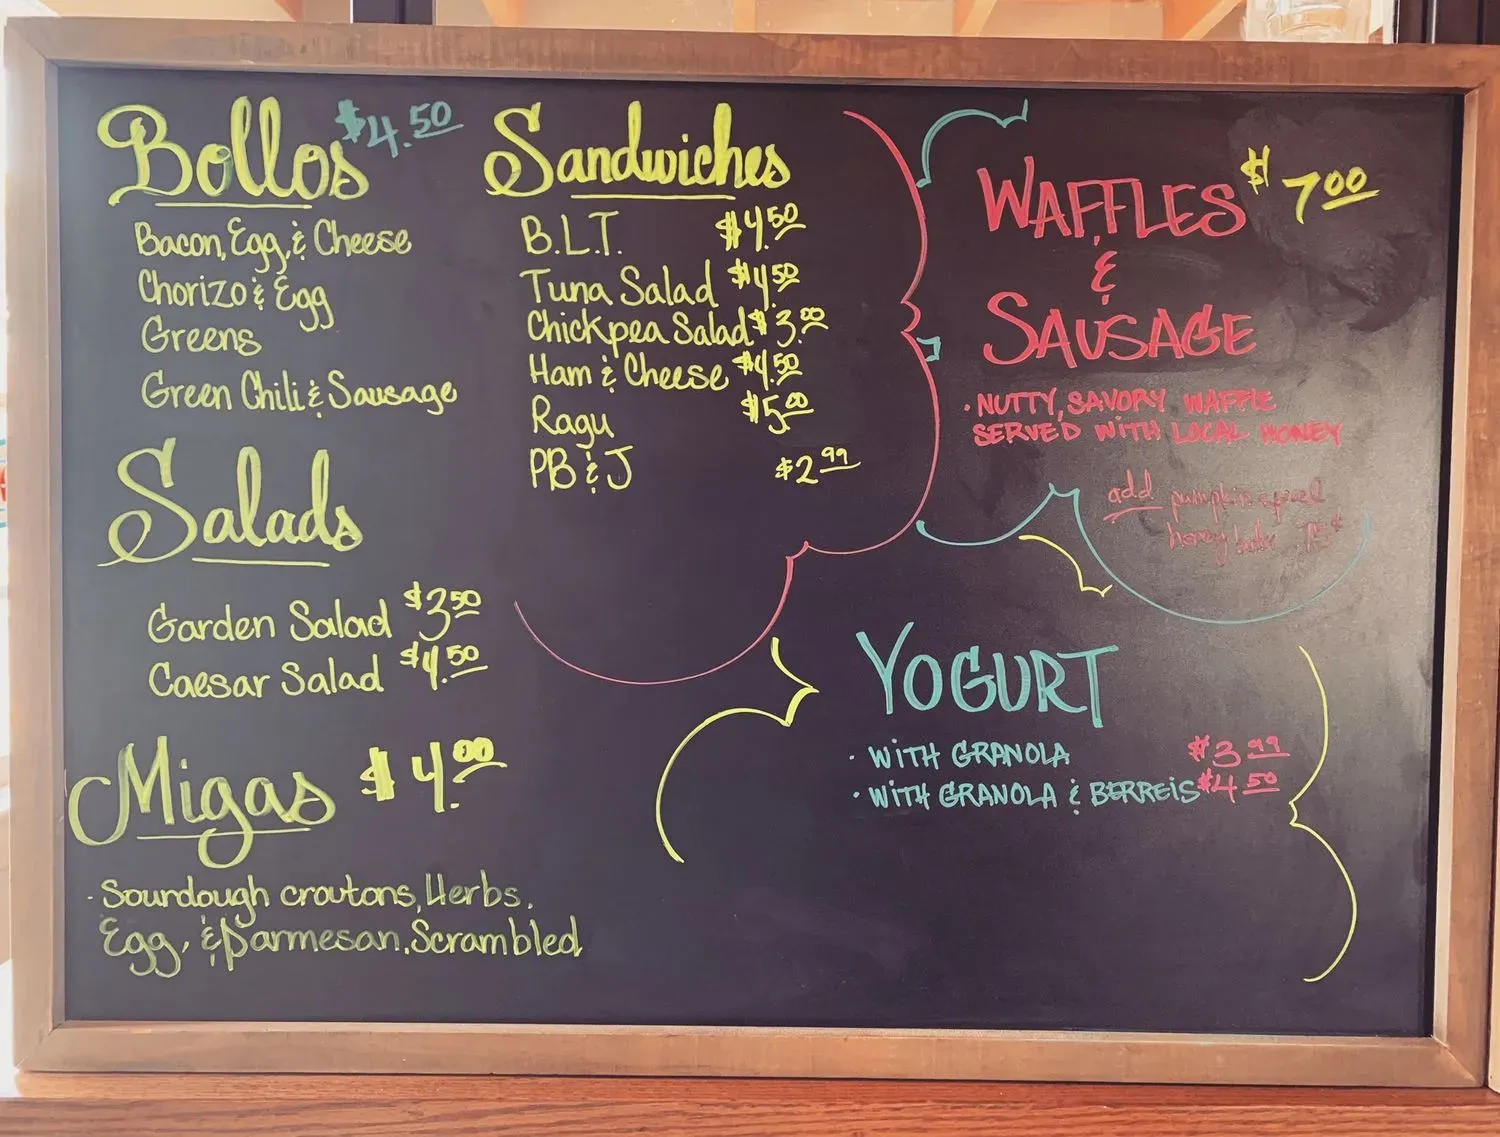 Bollos $4.50
Bacon, Egg, & Cheese
Chorizo & Egg
Greens
Green Chili & Sausage
Salads
Garden Salad $3.50
Caesar Salad $4.50
Migas $4.00
· Sourdough croutons, Herbs,
Egg, & Parmesan. Scrambled
Sandwiches
B.L.T. $4.50
Tuna Salad $4.50
Chickpea Salad $3.00
Ham & Cheese $4.50
Ragu $5.00
PB & J $2.99
WAFFLES $7.00
&
SAUSAGE
· NUTTY, SAVORY WAFFLE
SERVED WITH LOCAL HONEY
add pumpkin
honey
YOGURT
· WITH GRANOLA $3.99
· WITH GRANOLA & BERREIS $4.50